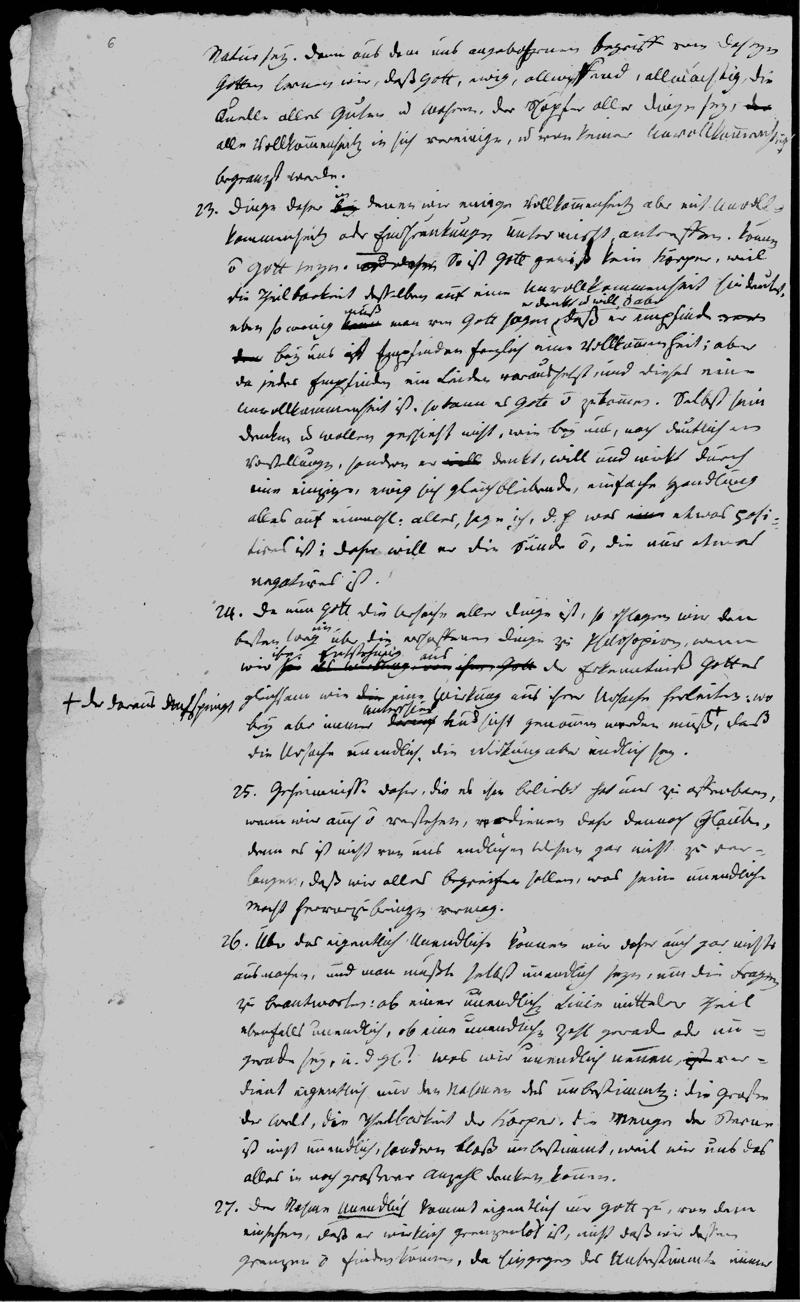 6
Natur sey. Denn aus dem uns angebohrnen Begriff vom Daseyn
Gottes lernen wir, daß Gott, ewig, allwissend, allmächtig, die
Quelle alles Guten u Wahren, der Schöpfer aller Dinge sey,
alle Vollkommenheitn in sich vereinige, u von keiner Unvollkommenheit
begränzt werde.
23. Dinge daher in denen wir einige Vollkommenheitn aber mit Unvoll-
kommenheitn oder Einschränkungen untermischt, antreffen. können
ō Gott seyn. So ist Gott gewiß kein Körper, weil
die Theilbarkeit desselben auf eine Unvollkommenheit hindeutet,
er denkt u will, ō aber
eben so wenig muß man von Gott sagen, daß er empfinde
bey uns ist Empfinden freylich eine Vollkommenheit; aber
da jedes Empfinden ein Leiden voraussetzt, und dieses eine
Unvollkommenheit ist. so kann es Gott ō zukommen. Selbst sein
denken u wollen geschieht nicht, wie bey uns, nach deutlichen
Vorstellungen, sondern er denkt, will und wirkt durch
eine einzige, ewig sich gleichbleibende, einfache Handlung
alles auf einmahl: alles, sage ich, d. h was etwas posi-
tives ist; daher will er die Sünde ō, die nur etwas
negatives ist.
24. Da nun Gott die Ursache aller Dinge ist, so schlagen wir den
besten Weg ein über die erschaffenen Dinge zu Philosophiren, wenn
wir ihre Entstehung aus der Erkenntniß Gottes
gleichsam wie eine Wirkung aus ihrer Ursache herleiten: wo
bey aber immer Hinsicht genommen werden muß, daß
die Ursache unendlich, die Wirkung aber endlich sey.
+ der daraus entspringt
25. Geheimnisse daher, die es ihm beliebt hat uns zu offenbaren,
wenn wir auch ō verstehen, verdienen daher dennoch Glauben,
denn es ist nicht von uns endlichen Wesen gar nicht zu ver-
langen, daß wir alles begreifen sollen, was seine unendliche
Macht hervorzubringen vermag.
26. Über das eigentlich Unendliche können wir daher auch gar nichts
ausmachen, und man müßte selbst unendlich seyn, um die Fragen
zu beantworten: ob einer unendlichen Linie mittelter Theil
ebenfalls unendlich, ob eine unendliche Zahl gerade oder un-
gerade sey, u. d gl.? was wir unendlich nennen, ver-
dient eigentlich nur den Nahmen des unbestimmten: die Größe
der Welt, die Theilbarkeit der Körper, die Menge der Sterne
ist nicht unendlich, sondern bloß unbestimmt, weil wir uns das
alles in noch größerer Anzahl denken können.
27. Der Nahme Unendlich kommt eigentlich nur Gott zu, von dem
einsehen, daß er wirklich grenzenlos ist, nicht daß wir dessen
Grenzen ō finden können, da hingegen das Unbestimmte immer